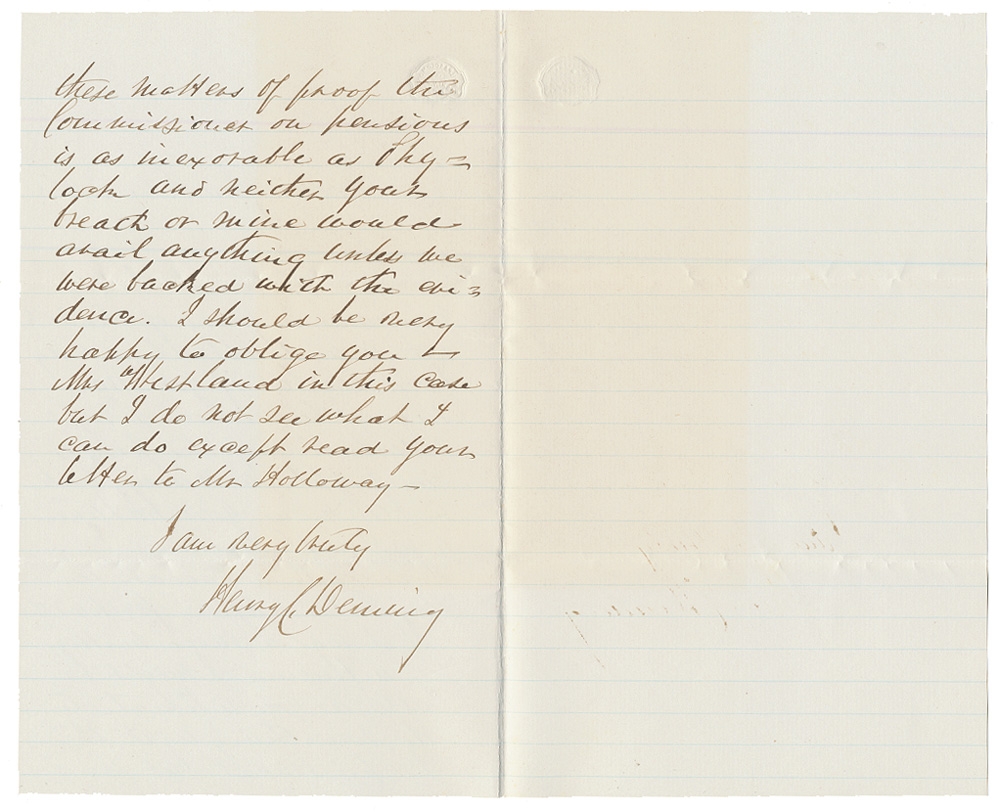 these matters of proof the
Commissioner on pensions
is as inexorable as Shy=
lock and neither your
breath or mine would
avail anything unless we
were backed with the evi=
dence. I should be very
happy to oblige you &
Mrs Westland in this case
but I do not see what I
can do except read your
letter to Mr Holloway—
I am very truly
Henry C Deming